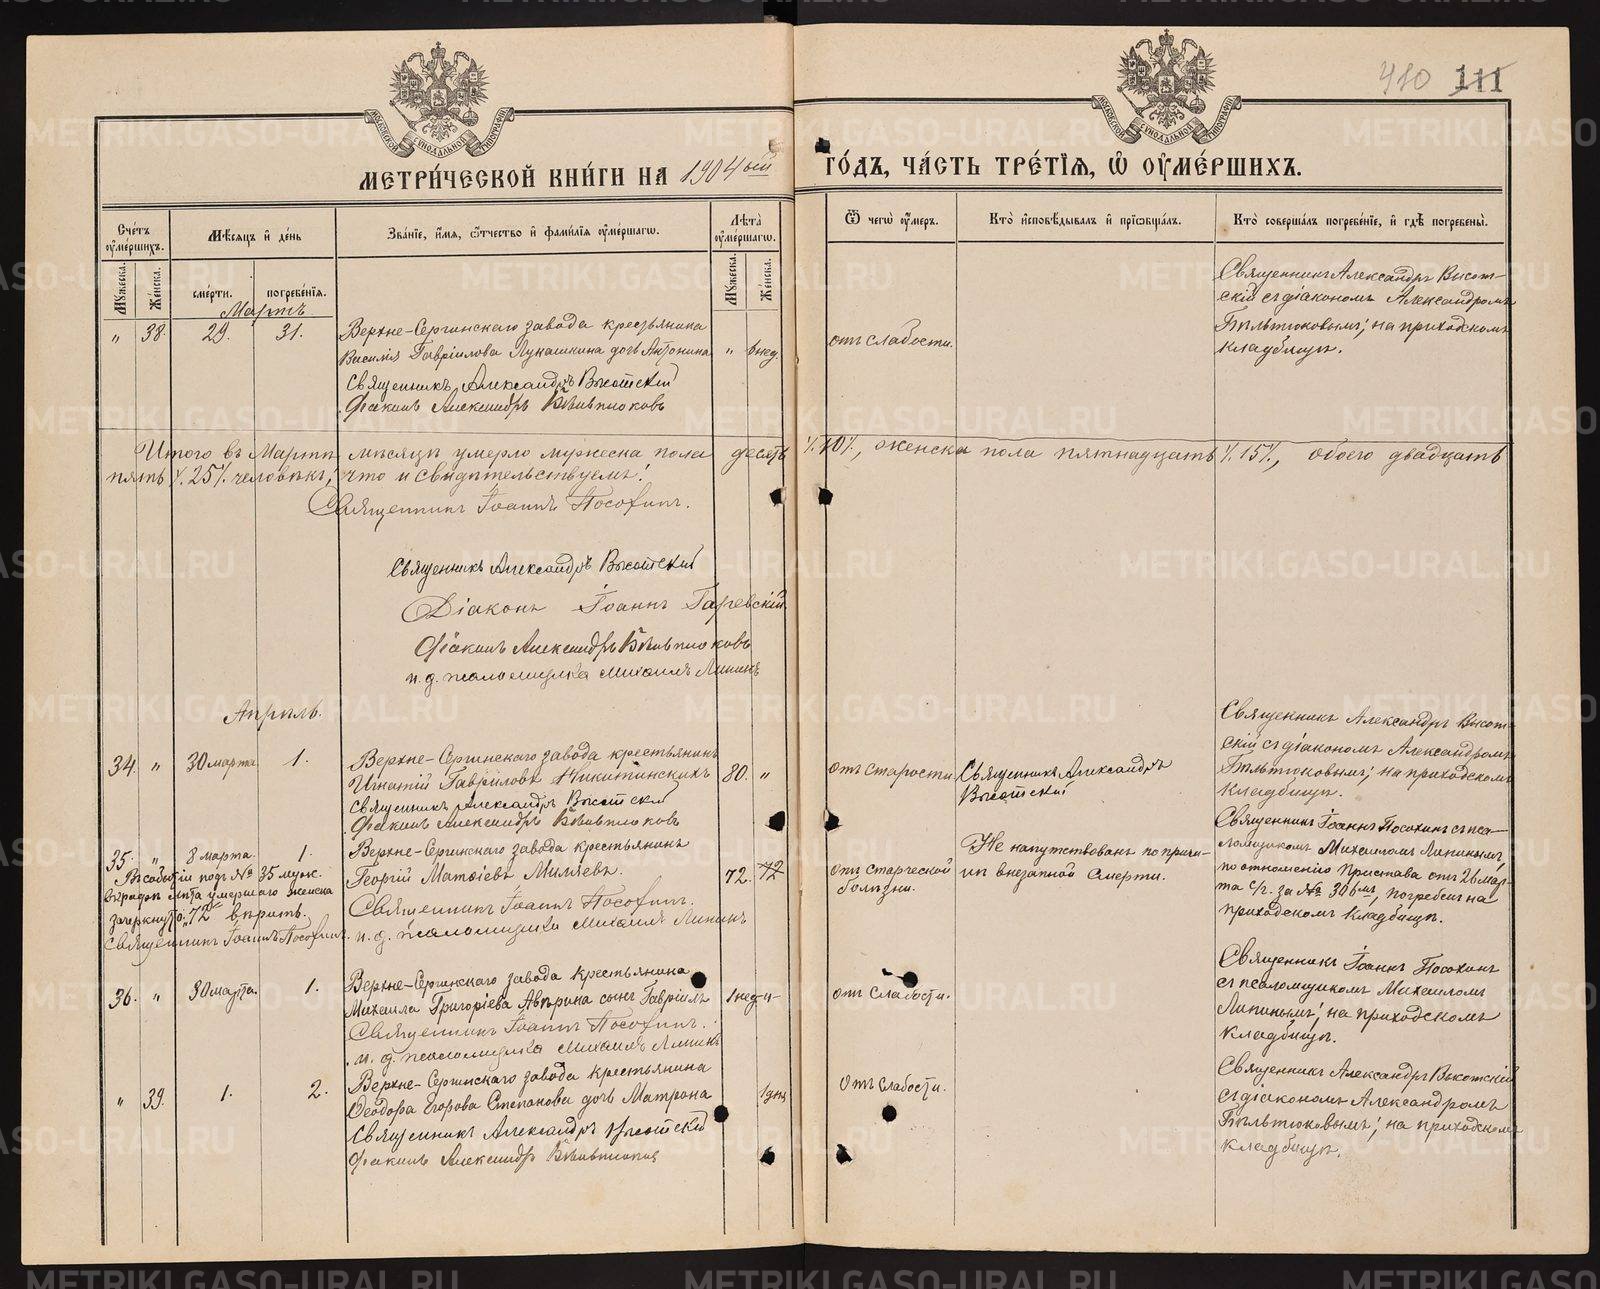 410 111
МОСКОВСКОЙ СѴНОДАЛЬНОЙ ТИПОГРАФІИ
МОСКОВСКОЙ СѴНОДАЛЬНОЙ ТИПОГРАФІИ
МЕТРИ́ЧЕСКОЙ КНИ́ГИ НА 1904ый ГО́ДЪ, ЧА́СТЬ ТРЕ́ТІѦ, Ѽ ОУ҆МЕ́РШИХЪ.
Сче́тъ оу҆ме́ршихъ.
Мѣ́сѧцъ и҆ де́нь
Зва́нїе, и҆́мѧ, ѻ҆́тчество и҆ фами́лїѧ оу҆ме́ршагѡ.
Лѣ́та оу҆ме́ршагѡ.
Ѿ чегѡ̀ оу҆́меръ.
Кто̀ и҆сповѣ́дывалъ и҆ прїѡбща́лъ.
Кто̀ соверша́лъ погребе́нїе, и҆ гдѣ̀ погребены̀.
Мꙋ́жеска. Же́нска.
сме́рти. погребе́нїѧ.
Мꙋ́жеска. Же́нска.
Мартъ
„ 38. 29. 31.
Верхне-Сергинскаго завода крестьянина
Василія Гавріилова Лукашкина дочь Антонина
„ 6 нед.
Священникъ Александръ Высотскій
Діаконъ Александръ Бѣльтюковъ
отъ слабости.
Священникъ Александръ Высот-
скій съ діакономъ Александромъ
Бѣльтюковымъ; на приходскомъ
кладбищѣ.
Итого въ Мартѣ мѣсяцѣ умерло мужеска пола десять /.10/., женска пола пятнадцать /.15/., обоего двадцать
пять /.25/. человѣкъ; что и свидѣтельствуемъ:
Священникъ Іоаннъ Посохинъ.
Священникъ Александръ Высотскій
Діаконъ Іоаннъ Гаревскій
Діаконъ Александръ Бѣльтюковъ
и. д. псаломщика Михаилъ Липинъ
Апрѣль.
34. „ 30 марта. 1.
Верхне-Сергинскаго завода крестьянинъ
Игнатій Гавріиловъ Никитинскихъ
80. „
Священникъ Александръ Высотскій
Діаконъ Александръ Бѣльтюковъ
отъ старости.
Священникъ Александръ
Высотскій
Священникъ Александръ Высот-
скій съ діакономъ Александромъ
Бѣльтюковымъ; на приходскомъ
кладбищѣ.
35. „ 8 марта. 1.
Въ событіи подъ № 35 муж.
въ графѣ лѣта умершаго женска
зачеркнуто „72" вѣрить.
Священникъ Іоаннъ Посохинъ.
Верхне-Сергинскаго завода крестьянинъ
Георгій Матѳіевъ Миляевъ.
72. 72
Священникъ Іоаннъ Посохинъ.
и. д. псаломщика Михаилъ Липинъ
отъ старческой
болѣзни.
Не напутствованъ по причи-
нѣ внезапной смерти.
Священникъ Іоаннъ Посохинъ съ пса-
ломщикомъ Михаиломъ Липинымъ,
по отношенію Пристава отъ 26 мар-
та с/г. за № 306мъ, погребенъ на
приходскомъ кладбищѣ.
36. „ 30 марта. 1.
Верхне-Сергинскаго завода крестьянина
Михаила Григоріева Авѣрина сынъ Гавріилъ
1 нед. „
Священникъ Іоаннъ Посохинъ.
и. д. псаломщика Михаилъ Липинъ
отъ слабости.
Священникъ Іоаннъ Посохинъ
съ псаломщикомъ Михаиломъ
Липинымъ; на приходскомъ
кладбищѣ.
„ 39. 1. 2.
Верхне-Сергинскаго завода крестьянина
Ѳеодора Егорова Степанова дочь Матрона
1 днь
Священникъ Александръ Высотскій
Діаконъ Александръ Бѣльтюковъ
отъ слабости.
Священникъ Александръ Высотскій
съ діакономъ Александромъ
Бѣльтюковымъ; на приходскомъ
кладбищѣ.
METRIKI.GASO-URAL.RU